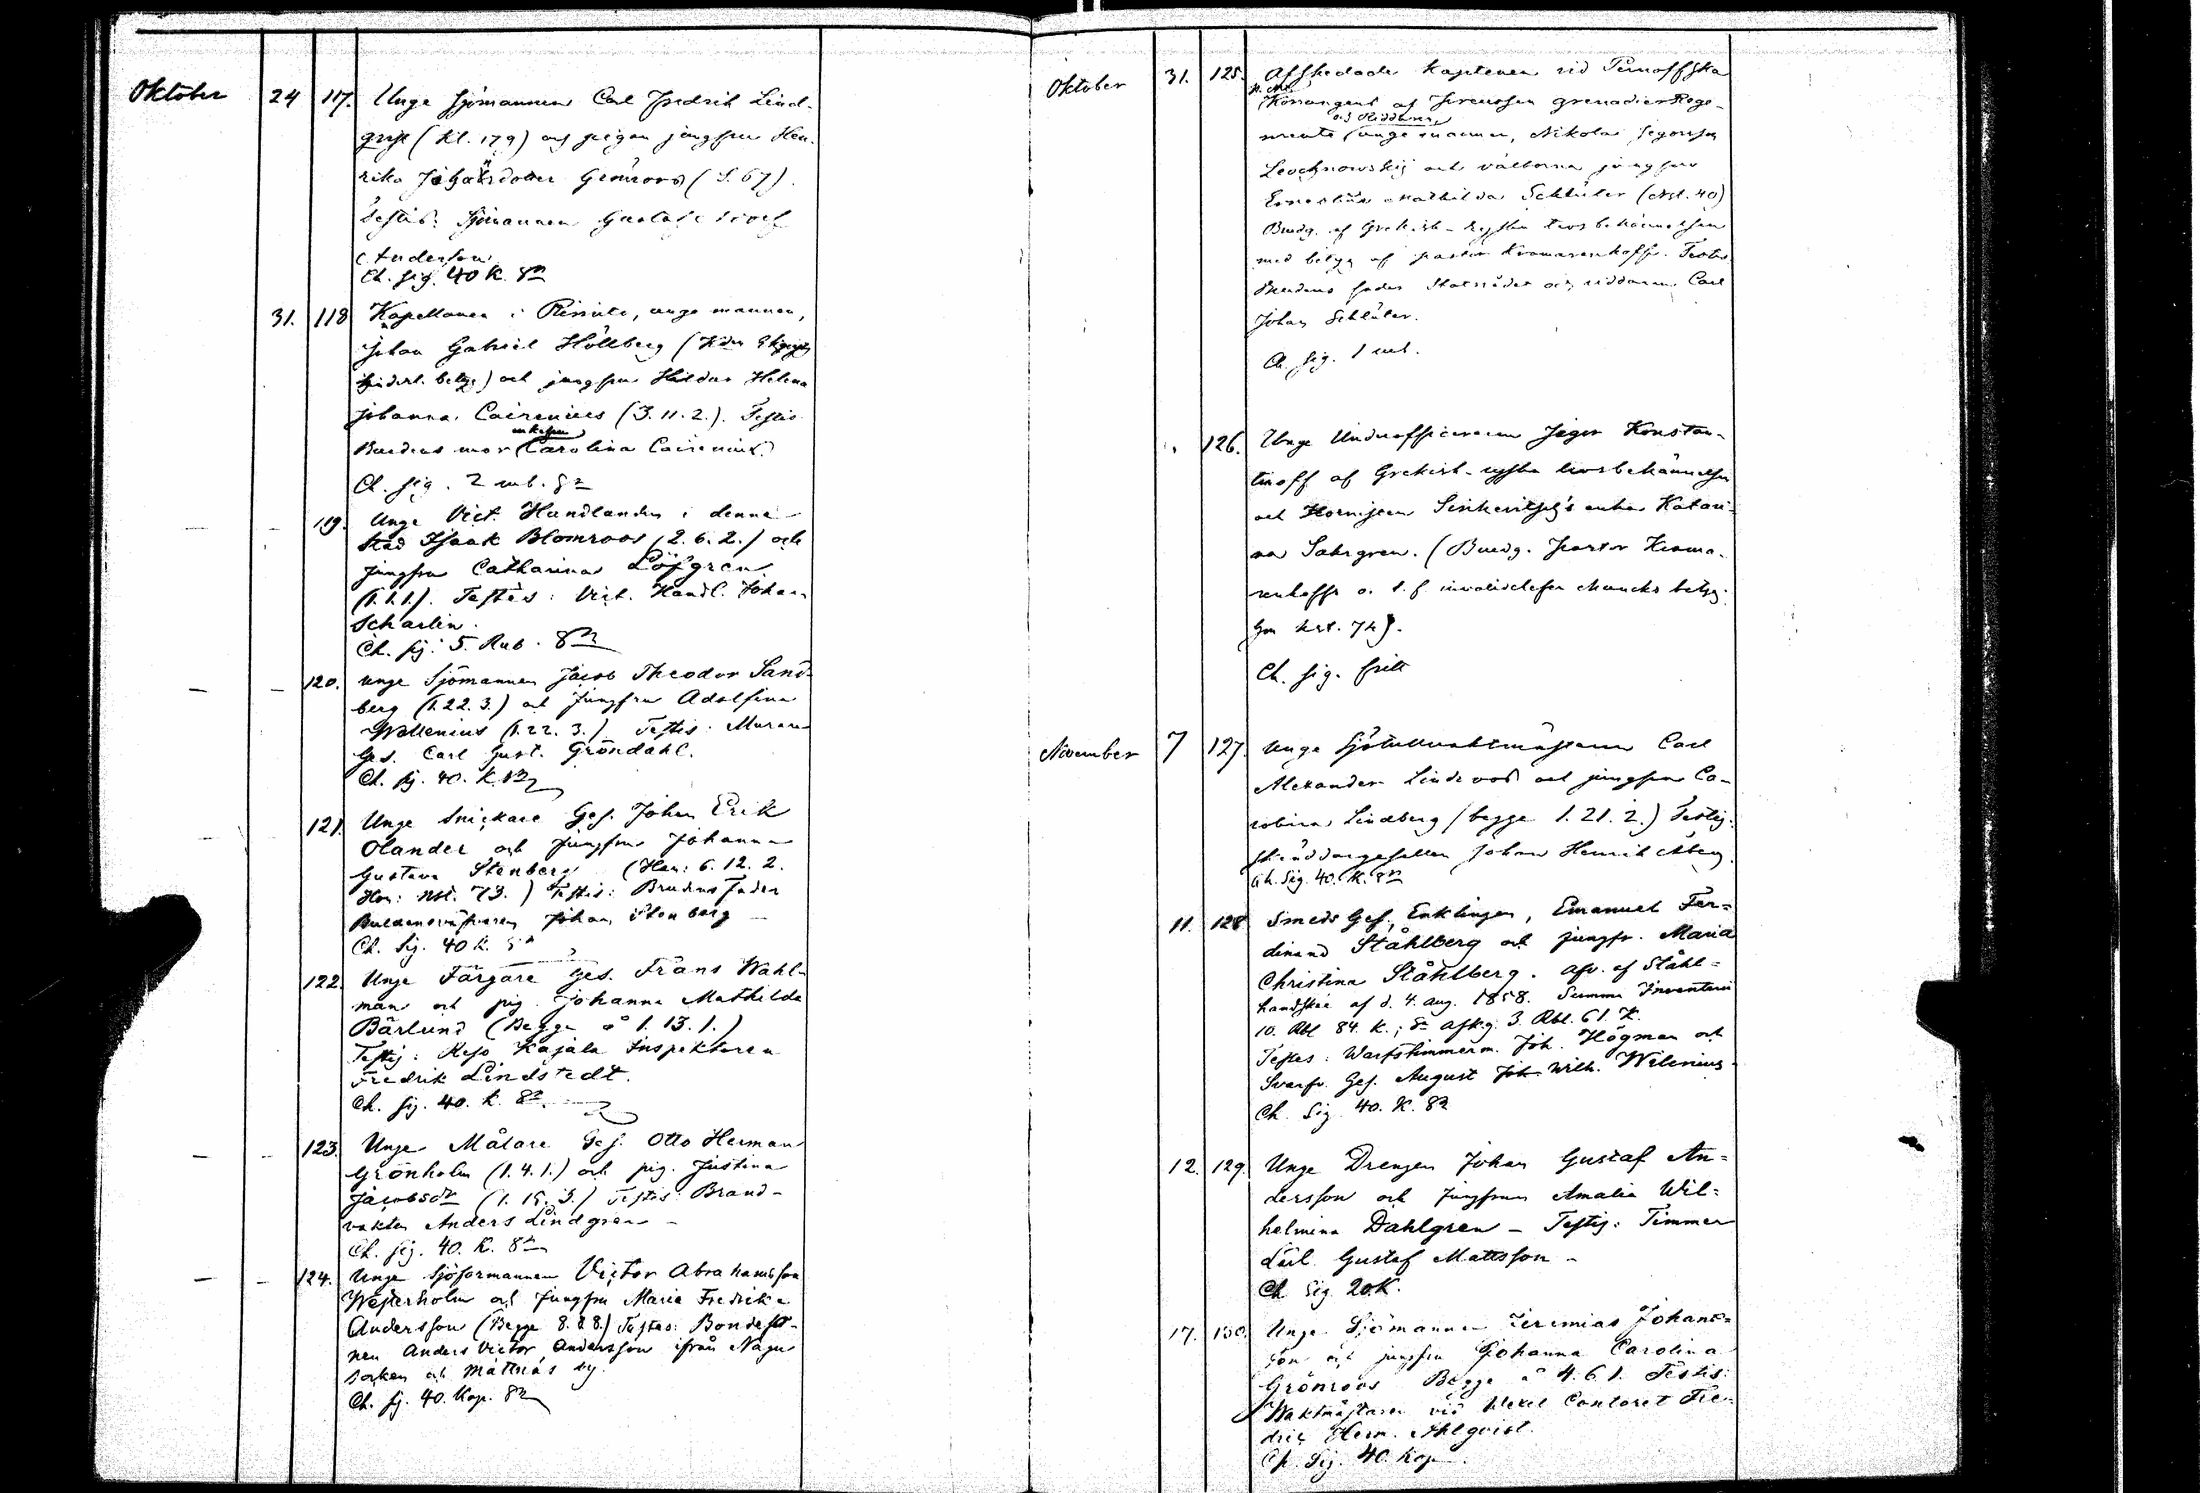 Oktober 24 117. Unge Sjömannen Carl Fredrik Lind-
qvist (Kl. 179) och pigan jungfru Hen-
rika Johansdotter Grönroos (S. 67).
Testis: Sjömannen Gustaf Adolf
Andersson
Ch. sig. 40 K. Sr
31. 118 Kapellanen i Rimito, unge mannen,
Johan Gabriel Höllberg
betyg) och jungfru Hilda Helena
Johanna Cairenius (3.11.2.). Testis
Brudens mor enkefru Carolina Cairenius.
Ch. sig. 2 rub. Sr
119. Unge Vict. Handlanden i denna
stad Isaak Blomroos (2.6.2.) och
jungfru Catharina Löfgren
(1.1.1.). Testes: Vict. Handl. Johan
Scharlin.
Ch. sig. 5 Rub. Sr
120. Unge Sjömannen Jacob Theodor Sand-
berg (1.22.3.) och Jungfru Adolfina
Wallenius (1.22.3.) Testis. Murare
Ges. Carl Gust. Gröndahl.
Ch. sig. 40. K. Sr
121. Unge Snickare Ges. Johan Erik
Olander och Jungfru Johanna
Gustava Stenberg (Han: 6.12.2.
Hon: Nst. 73.) Testis: Brudens Fader
Johan Stenberg
Ch. Sig. 40 K. Sr
122. Unge Färgare Ges. Frans Wahl-
man och pig. Johanna Mathilda
Bärlund (Begge å 1.13.1.)
Testis: Reso Kajala Inspektoren
Fredrik Lindstedt.
Ch. sig. 40. K. Sr
123. Unge Målare Ges. Otto Herman
Grönholm (1.4.1.) och pig. Justina
Jacobsdr (1.15.3.) Testis: Brand-
vakten Anders Lindgren
Ch. sig. 40. K. Sr
124. Unge Sjöformannen Victor Abrahamsson
Westerholm och Jungfru Maria Fredrika
Andersson (Begge 8.8.8.) Testes: Bondeso-
nen Anders Victor Andersson ifrån Nagu
socken och Mattnäs by.
Ch. sig. 40. Kop. Sr
Oktober 31. 125. Afskedade Kapitenen vid
af Preussen grenadier Rege-
mente och Riddaren, unge mannen, Nikolai
och välborna jungfru
Ernestine Mathilda Schlüter (Nst. 40)
Brudg. af Grekisk-ryska trosbekännelsen
med betyg af pastor. Testis
Brudens fader Statsrådet och riddaren Carl
Johan Schlüter.
Ch. sig. 1 rub.
126. Unge Underofficeraren Jegor Konstan-
tinoff af Grekisk-ryska trosbekännelsen
och Hornisten enka Katari-
na Sahrgren. (Brudg. pastor
betyg.
Hon kst. 74).
Ch. sig. fritt
November 7 127. Unge Sjötullvaktmästaren Carl
Alexander Lindroos och jungfru Ca-
rolina Lindberg (begge 1.21.2.) Testis:
Skräddaregesällen Johan Henrik Åberg
Ch. Sig. 40. K. Sr
11. 128 Smeds Ges., Enklingen, Emanuel Fer-
dinand Ståhlberg och jungfr. Maria
Christina Ståhlberg. Afv. af Ståhl-
handske af d. 4. Aug. 1858. Summa Inventarii
10. Rbl 84. K.; Sr Afkg. 3. Rbl. 61. K.
Testes: Warfstimmerm. Joh. Högman och
Svarfv. Ges. August Joh. Wilh. Wilenius.
Ch. Sig. 40. K. Sr
12. 129. Unge Drengen Johan Gustaf An-
dersson och Jungfrun Amalia Wil-
helmina Dahlgren – Testis: Timmer
karl Gustaf Mattsson –
Ch. Sig. 20 K.
17. 130. Unge Sjömannen Jeremias Johans-
son och jungfru Johanna Carolina
Grönroos Begge å 4.6.1. Testis:
Waktmästaren vid Wexel Contoret Fre-
drik Herm. Ahlqvist.
Ch. Sig. 40. Kop.